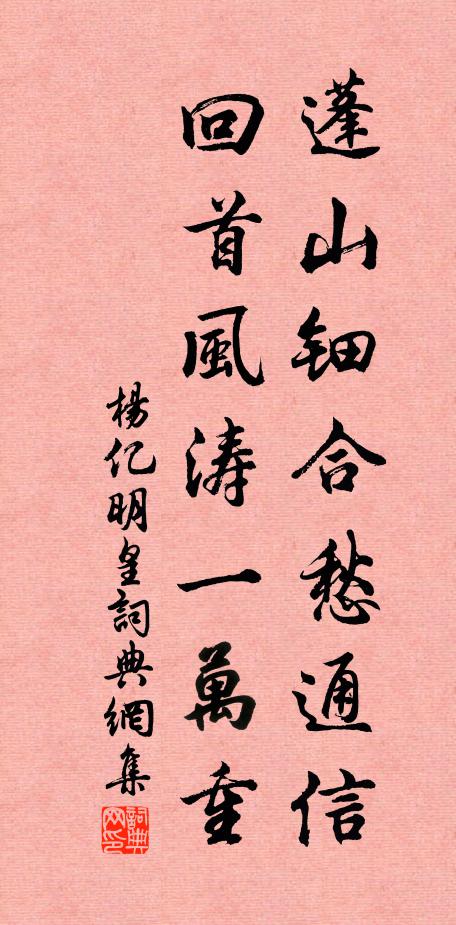 蓬山鈿合愁通信
回首風濤一萬重
楊亿明皇詞典網集
詞典网印